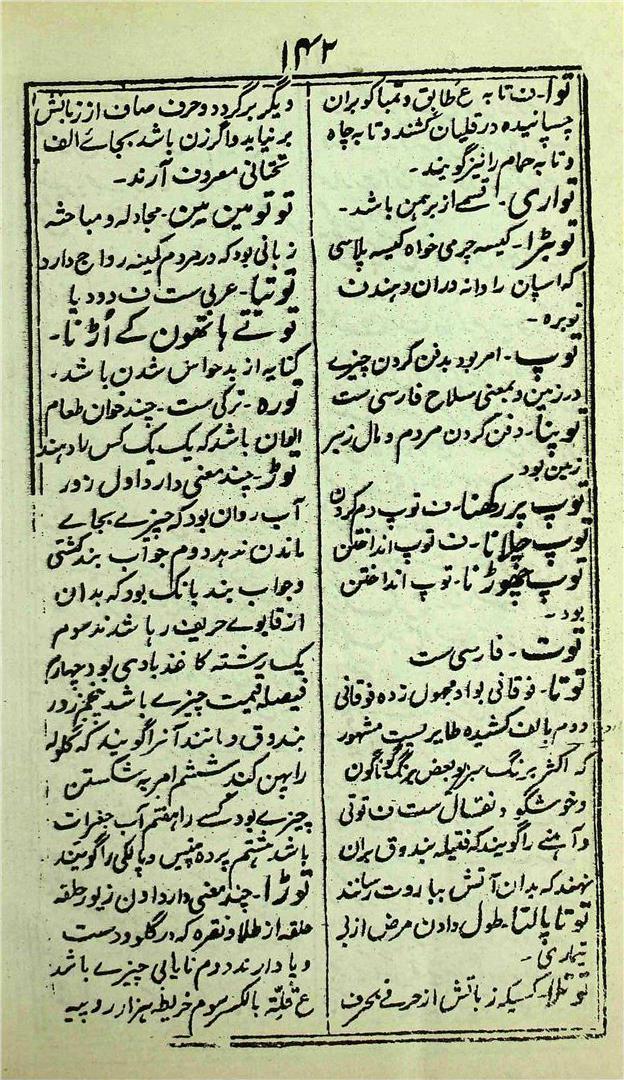 ۱۴۲
توا - ن تابه ع طابق و تمباکو بران
چسپانیده در قلیان کشند و تابه چاه
و تابه حمام را نیز گویند -
تواری - قسمے از برہمن باشد -
توبڑا - کیسه چرمی خواه کیسه پلاسی
که اسپان را دانه دران دہند ن
توبره -
توپ - امر بود بدفن کردن چیزے
در زمین و بمعنی سلاح فارسی ست
توپنا - دفن کردن مردم و مال زیر
زمین بود
توپ پر رکھنا - ن توپ دم کردن
توپ چلانا - ن توپ انداختن
توپ چھوڑنا - توپ انداختن
بود -
توت - فارسی ست
توتا - فوقانی بواو مجهول زده فوقانی
دوم بالف کشیده طایریست مشهور
که اکثر برنگ سبز و بعض برنگ گوناگون
و خوشگو و نقال ست ن توتی
و آهنے را گویند که فتیله بندوق بران
نهند که بدان آتش بباروت رسانند
توتا پالنا - طول دادن مرض از بے
تیماری -
توتلا - کسیکه زبانش از حرفے بحرف
دیگر برگردد و حرف صاف از زبانش
برنیاید و اگر زن باشد بجاے الف
تحتانی معروف آرند -
تو تو مین مین - مجادله و مباحثه
زبانی بود که در مردم کمینه رواج دارد
توتیا - عربی ست ن دودیا
توتے ہاتھون کے اُڑنا -
کنایه از بدحواس شدن باشد -
توره - ترکی ست - چند خوان طعام
الوان باشد که یک یک کس را دہند
توڑ - چند معنی دارد اول زور
آب روان بود که چیزے بجاے
ماندن ندہد دوم جواب بند کشتی
و جواب بند بانک بود که بدان
از قابوے حریف رہا شدند سوم
یک رشته کاغذ بادی بود چهارم
فیصله قیمت چیزے باشد پنجم زور
بندوق و مانند آنرا گویند که گلوله
را پهن کند ششم امر به شکستن
چیزے بود کسے را هفتم آب جغرات
باشد هشتم پرده پینس و پالکی را گویند
توڑا - چند معنی دارد اول زیور حلقه
حلقه از طلا و نقره که در گلو و دست
و پا دارند دوم نایابی چیزے باشد
ع قلّة بالکسر سوم خریطه هزار روپیه